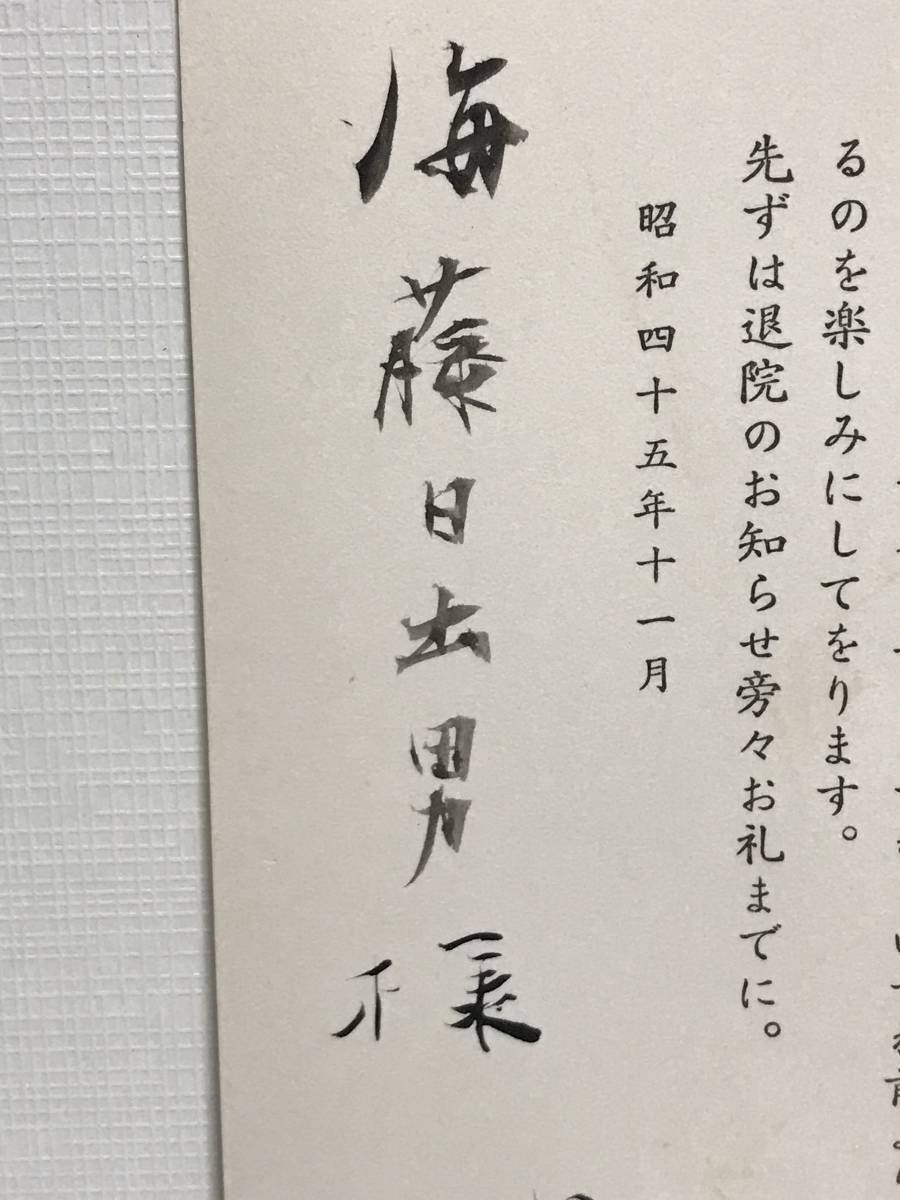 るのを楽しみにしてをります。
先ずは退院のお知らせ旁々お礼までに。
昭和四十五年十一月
海藤日出男様